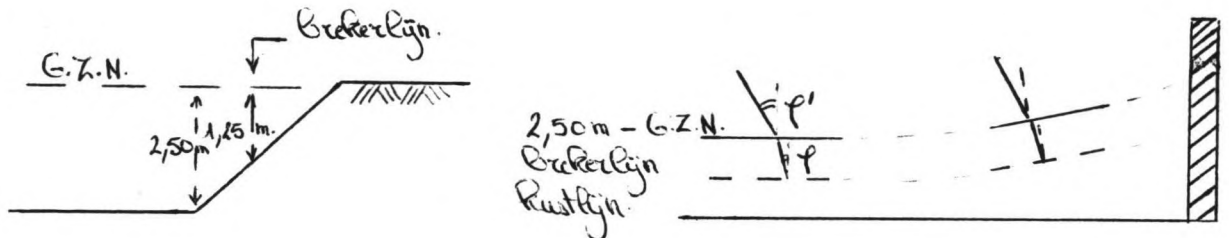 brekerlijn.
G.Z.N.
2,50m 1,25 m.
φ'
2,50m - G.Z.N.
brekerlijn φ
kustlijn.